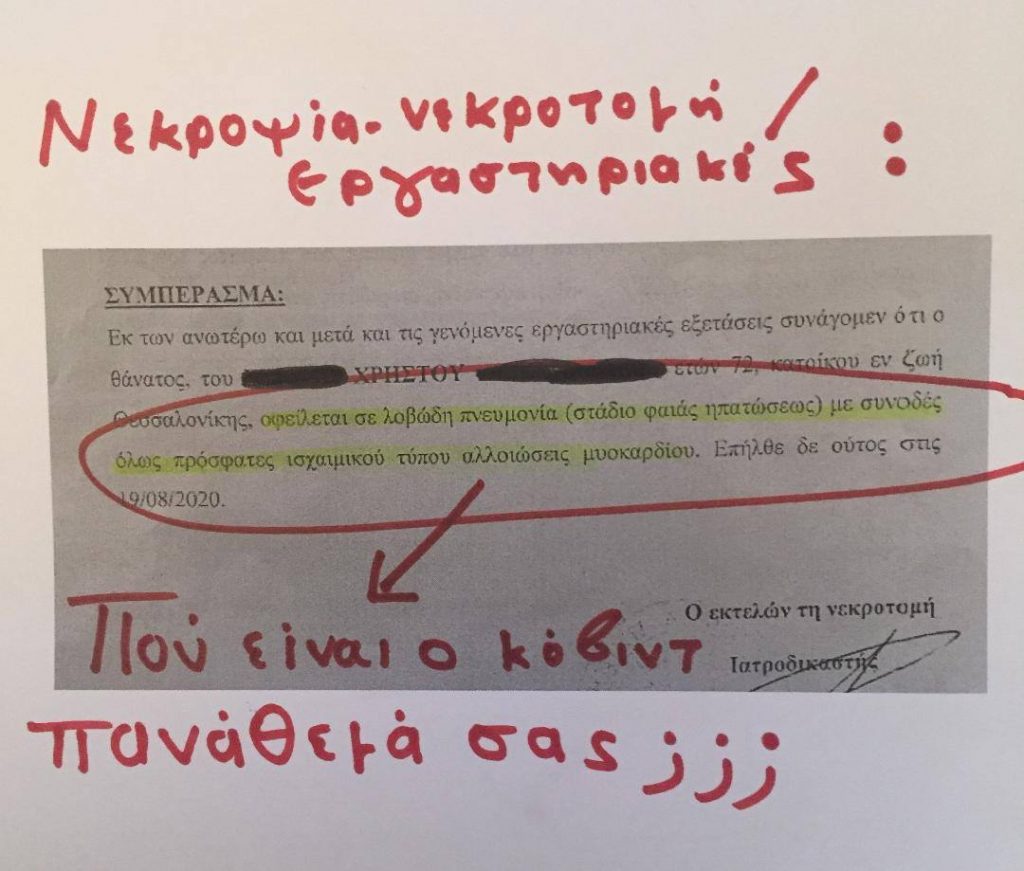 Νεκροψία-νεκροτομή/
εργαστηριακές :
ΣΥΜΠΕΡΑΣΜΑ:
Εκ των ανωτέρω και μετά και τις γενόμενες εργαστηριακές εξετάσεις συνάγομεν ότι ο
θάνατος, του ΧΡΗΣΤΟΥ ετών 72, κατοίκου εν ζωή
Θεσσαλονίκης, οφείλεται σε λοβώδη πνευμονία (στάδιο φαιάς ηπατώσεως) με συνοδές
όλως πρόσφατες ισχαιμικού τύπου αλλοιώσεις μυοκαρδίου. Επήλθε δε ούτος στις
19/08/2020.
Ο εκτελών τη νεκροτομή
Πού είναι ο κόβιντ
Ιατροδικαστής
πανάθεμά σας ;;;